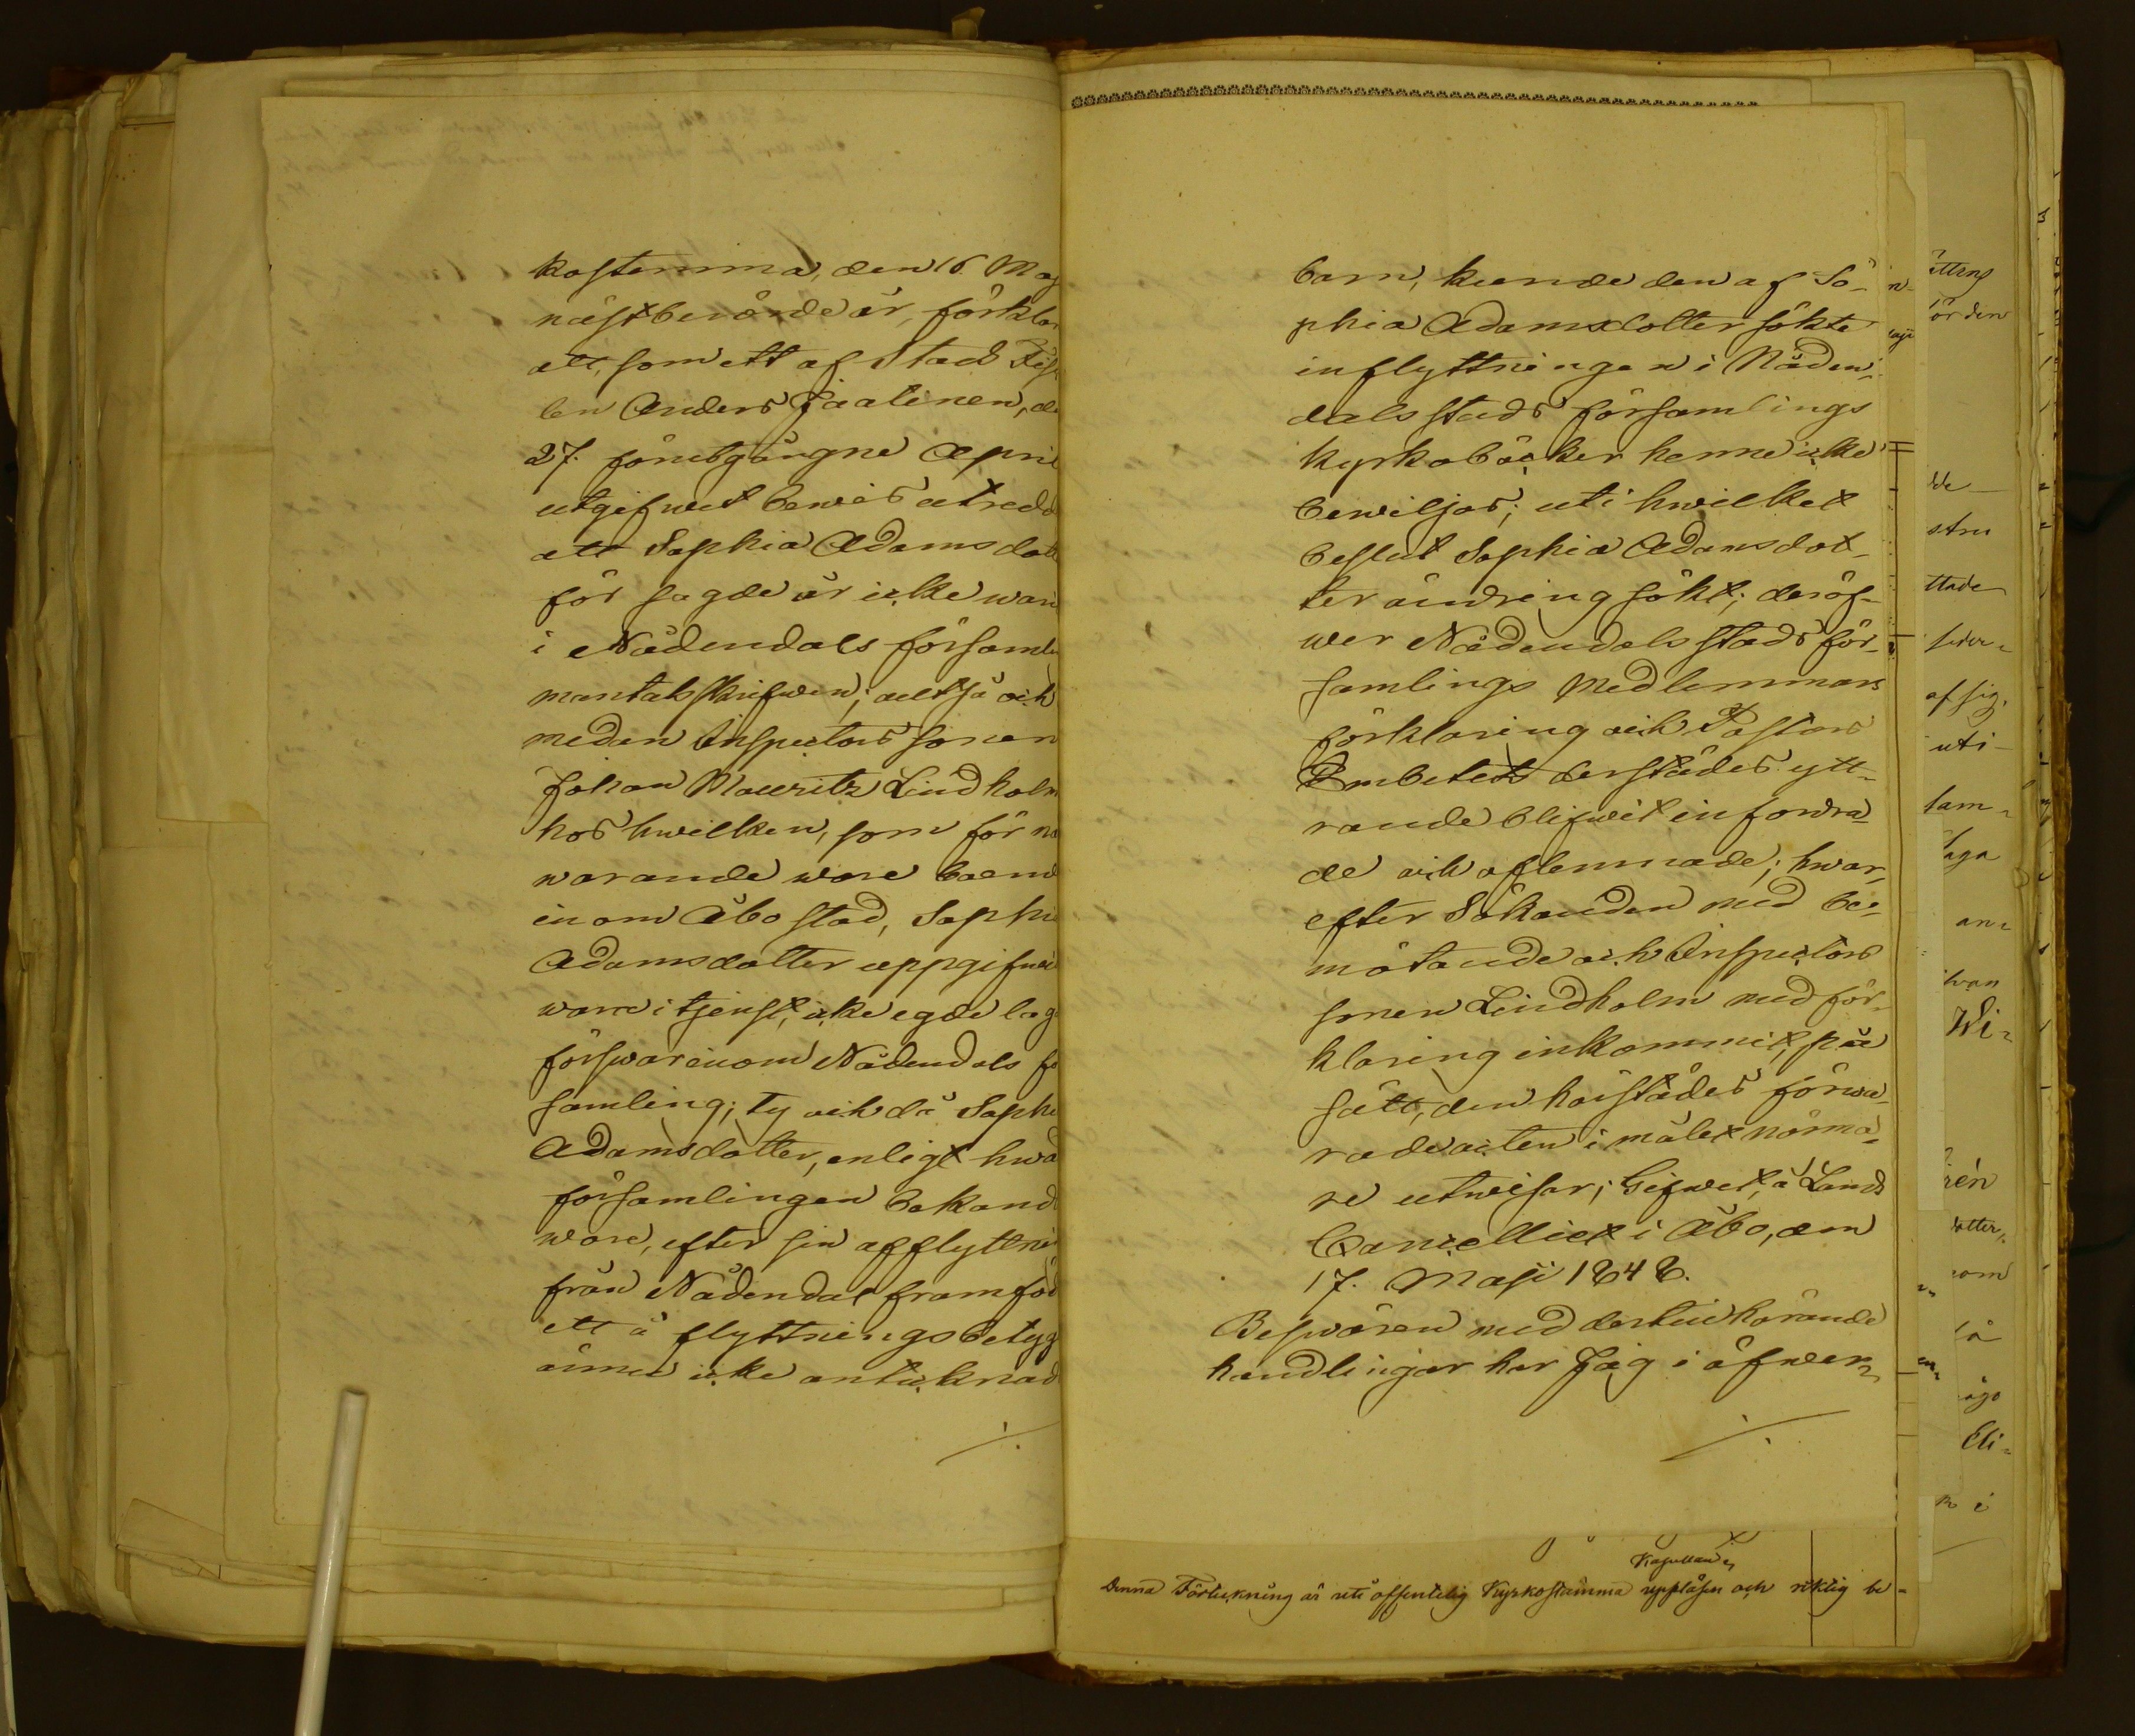 kostemma, den 16 Maj
nästberörde år, förkla
att, som ett af Stads Fisk
len Anders Jaatinen, de
27. förutgångne April
utgifwet bewis utredd
att Sophia Adamsdott
för sagde år icke warit
i Nådendals församli
mantalsskrifwen; altså och
medan Inspectors sonen
Johan Mauritz Lindholm
hos hwilken, som för n
warande wore boend
inom Åbo stad, Sophi
Adamsdotter uppgifwi
wara i tjenst, icke egde lag
förswar inom Nådendals fö
samling; ty och då Sophi
Adamsdotter, enligt hwad
församlingen bekandt
wore, efter sin afflyttni
från Nådendal framföd
ett å flyttningsbetyg
ännu icke antecknad
./.
barn, kunde den af So-
phia Adamsdotter sökte
inflyttningen i Nåden-
dals stads församlings
kyrkoböcker henne icke
bewiljas; uti hwilket
beslut Sophia Adamsdot-
ter ändring sökt; deröf-
wer Nådendals stads för-
samlings medlemmars
förklaring och Pastors
Embetets derstädes ytt-
rande blifwit infordra-
de och aflemnade; hwar-
efter Sökanden med be-
mötande och Inspectors
sonen Lindholm med för-
klaring inkommit, på
sätt, den härstädes förwa-
rade acten i målet närma-
re utwisar; Gifwet, å Lands
Cancelliet i Åbo, den
17. Maji 1848.
Beswären med dertill hörande
handlingar har Jag i öfwer-
./.
Kapellan
Denna Förtekning är uti offentelig Kyrkostämma uppläsen och riktig be-
ör den
stru
ttade
af sig.
uti
tam-
laga
an-
Wi-
rén
dotter,
som
så
ågo
Eli-